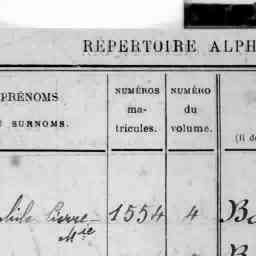 RÉPERTOIRE ALPH
PRÉNOMS
SURNOMS.
NUMÉROS
ma-
tricules.
NUMÉRO
du
volume.
Pierre 1554 4
Mie